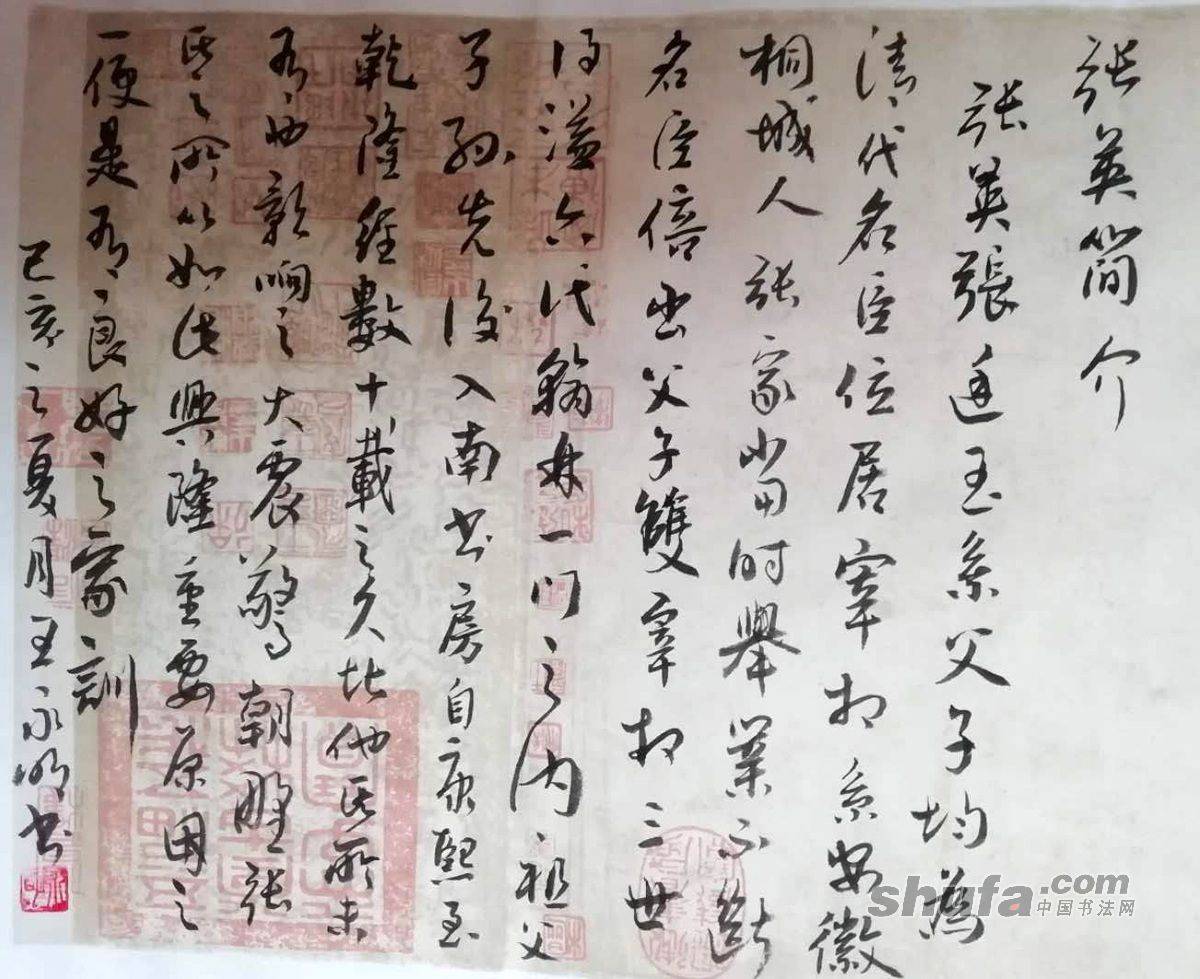 张英簡介
张英張廷玉系父子均為
清代名臣位居宰相系安徽
桐城人张家当时舉業不斷
名臣倍出父子雙宰相三世
得溢六代翰林一门之内祖父
子孫先後入南书房自康熙至
乾隆经數十載之久比他氏所未
有也影响之大震驚朝野张
氏之所以如此興隆重要原因之
一便是有良好之家訓
己亥之夏月王永明书
shufa.com
中国书法网